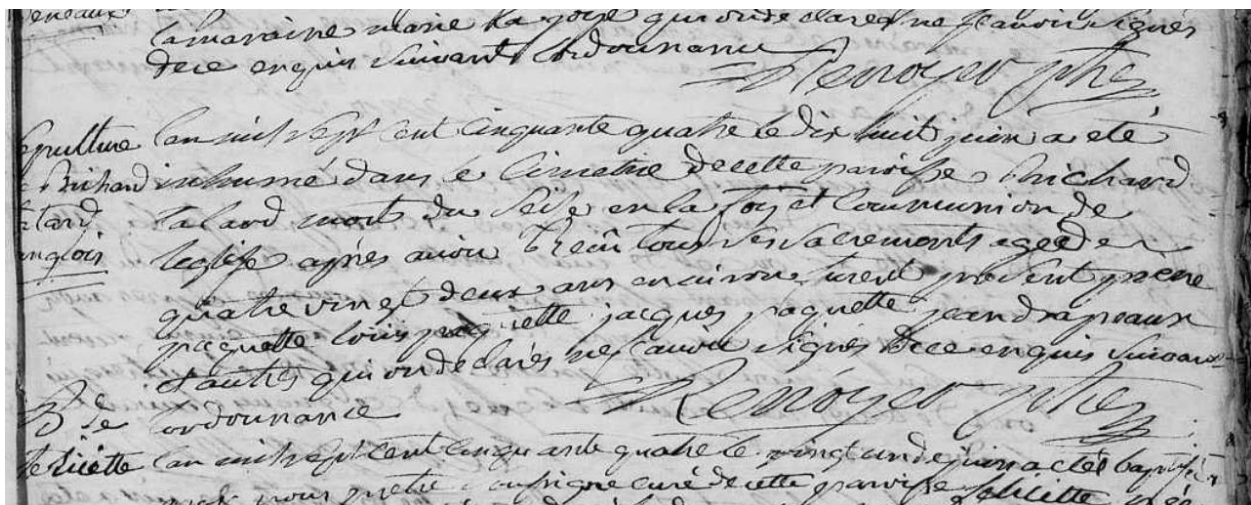 la maraine marie la joye qui onde clares ne scavoir signés
dece enquis suivant lordounance
Renoyer ptre
sepulture lan mil sept cent cinquante quatre le dix huit juin a eté
Richard inhumé dans le cimetire decette paroisse Richard
talard mort du seise en la foy et Communion de
anglois leglise aprés avoir Receu tous ses sacrements agee de
quatre vingt deux ans environ furent present pierre
paquette louis paquette jacques paquette jean drapeaux
et autres qui on declarés ne scavoir signés dece enquis suivant
lordounance
Renoyer ptre
B de
felicitte lan mil sept cent cinquante quatre le vingt un de juin a etés baptisée
par nous pretre soussigne curé decette paroisse felicitte née